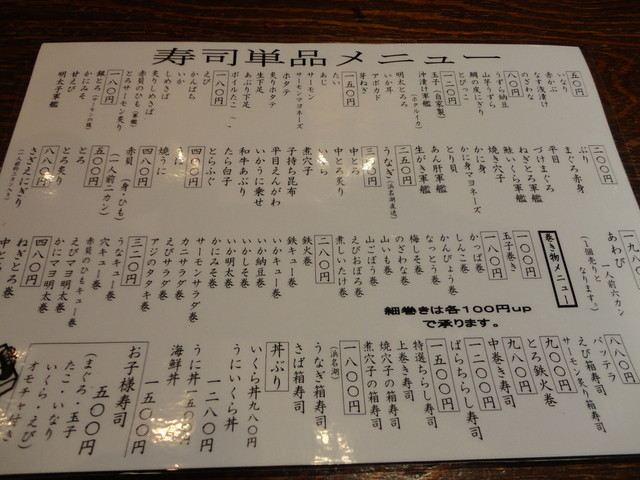 寿司単品メニュー
五〇円
いなり
赤かぶ
なす浅漬け
のざわな
八〇円
うずら納豆
山芋うずら
鯛の皮にぎり
とびっこ
一二〇円
玉子(自家製)
沖漬け軍艦
(ホタルイカ)
明太とろろ
いか耳
アボカド
芽ねぎ
一五〇円
たい
あじ
サーモン
サーモンマヨネーズ
ホタテ
あぶり下足
生下足
ボイルたこ
一八〇円
えび
かんぱち
いか
しめさば
炙りしめさば
赤貝のひも(軍艦)
とろサーモン炙り
一八〇円
銀とろ(サーモンの腹)
かにみそ
甘えび
明太子軍艦
二〇〇円
ぶり
まぐろ赤身
平目
づけまぐろ
ねぎとろ軍艦
鮭いくら軍艦
焼き穴子
かに身
かに身マヨネーズ
とり貝
あん肝軍艦
生がき軍艦
二五〇円
うなぎ(浜名湖直送)
三〇〇円
中とろ
中とろ炙り
いくら
煮穴子
子持ち昆布
平目えんがわ
いかうに乗せ
和牛あぶり
たら白子
とらふぐ
四〇〇円
うに
焼うに
四八〇円
赤貝(身・ひも)
(一人前一カン)
五八〇円
とろ
とろ炙り
八八〇円
さざえにぎり
あわび
一人前六カン
(1個売りとなります。)
巻き物メニュー
一〇〇円
玉子巻き
一八〇円
かっぱ巻
しんこ巻
かんぴょう巻
なっとう巻
梅しそ巻
のざわな巻
山いも巻
山ごぼう巻
えびおぼろ巻
煮しいたけ巻
二八〇円
鉄火巻
鉄キュー巻
いかキュー巻
いか納豆巻
いかしそ巻
いか明太巻
かにみそ巻
サーモンサラダ巻
カニサラダ巻
えびサラダ巻
アジのタタキ巻
三二〇円
うなキュー巻
穴キュー巻
赤貝のひもキュー巻
えびマヨ明太巻
かにマヨ明太巻
四八〇円
ねぎとろ巻
中とろ巻
細巻きは各100円up
で承ります。
八八〇円
バッテラ
えび箱寿司
サーモン炙り箱寿司
九〇〇円
とろ鉄火巻
九八〇円
中巻き寿司
一二〇〇円
ばらちらし寿司
一五〇〇円
特選ちらし寿司
上巻き寿司
焼穴子の箱寿司
煮穴子の箱寿司
一八〇〇円
(浜名湖)
うなぎ箱寿司
さば箱寿司
丼ぶり
いくら丼 九八〇円
うにいくら丼
一二八〇円
うに丼 一五〇〇円
海鮮丼
一五〇〇円
お子様寿司
五〇〇円
(まぐろ・玉子
たこ・いなり
いくら・えび)
オモチャ付き